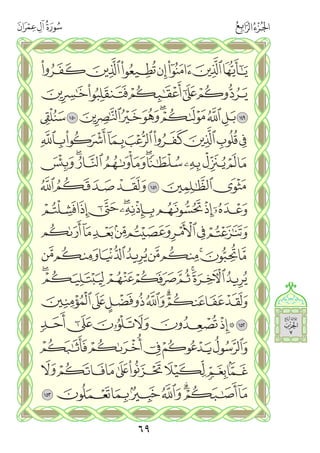 الجُزْءُ الرَّابِعُ
سُورَةُ آلِ عِمْرَانَ
يَٰٓأَيُّهَا ٱلَّذِينَ ءَامَنُوٓا۟ إِن تُطِيعُوا۟ ٱلَّذِينَ كَفَرُوا۟
يَرُدُّوكُمْ عَلَىٰٓ أَعْقَٰبِكُمْ فَتَنقَلِبُوا۟ خَٰسِرِينَ
١٤٩ بَلِ ٱللَّهُ مَوْلَىٰكُمْ ۖ وَهُوَ خَيْرُ ٱلنَّٰصِرِينَ ١٥٠ سَنُلْقِى
فِى قُلُوبِ ٱلَّذِينَ كَفَرُوا۟ ٱلرُّعْبَ بِمَآ أَشْرَكُوا۟ بِٱللَّهِ
مَا لَمْ يُنَزِّلْ بِهِۦ سُلْطَٰنًا ۖ وَمَأْوَىٰهُمُ ٱلنَّارُ ۚ وَبِئْسَ
مَثْوَى ٱلظَّٰلِمِينَ ١٥١ وَلَقَدْ صَدَقَكُمُ ٱللَّهُ
وَعْدَهُۥٓ إِذْ تَحُسُّونَهُم بِإِذْنِهِۦ ۖ حَتَّىٰٓ إِذَا فَشِلْتُمْ
وَتَنَٰزَعْتُمْ فِى ٱلْأَمْرِ وَعَصَيْتُم مِّنۢ بَعْدِ مَآ أَرَىٰكُم
مَّا تُحِبُّونَ ۚ مِنكُم مَّن يُرِيدُ ٱلدُّنْيَا وَمِنكُم مَّن
يُرِيدُ ٱلْءَاخِرَةَ ۚ ثُمَّ صَرَفَكُمْ عَنْهُمْ لِيَبْتَلِيَكُمْ ۖ
وَلَقَدْ عَفَا عَنكُمْ ۗ وَٱللَّهُ ذُو فَضْلٍ عَلَى ٱلْمُؤْمِنِينَ
١٥٢ ۞ إِذْ تُصْعِدُونَ وَلَا تَلْوُۥنَ عَلَىٰٓ أَحَدٍ
وَٱلرَّسُولُ يَدْعُوكُمْ فِىٓ أُخْرَىٰكُمْ فَأَثَٰبَكُمْ
غَمًّۢا بِغَمٍّ لِّكَيْلَا تَحْزَنُوا۟ عَلَىٰ مَا فَاتَكُمْ وَلَا
مَآ أَصَٰبَكُمْ ۗ وَٱللَّهُ خَبِيرٌۢ بِمَا تَعْمَلُونَ ١٥٣
الحزب
٧
٦٩